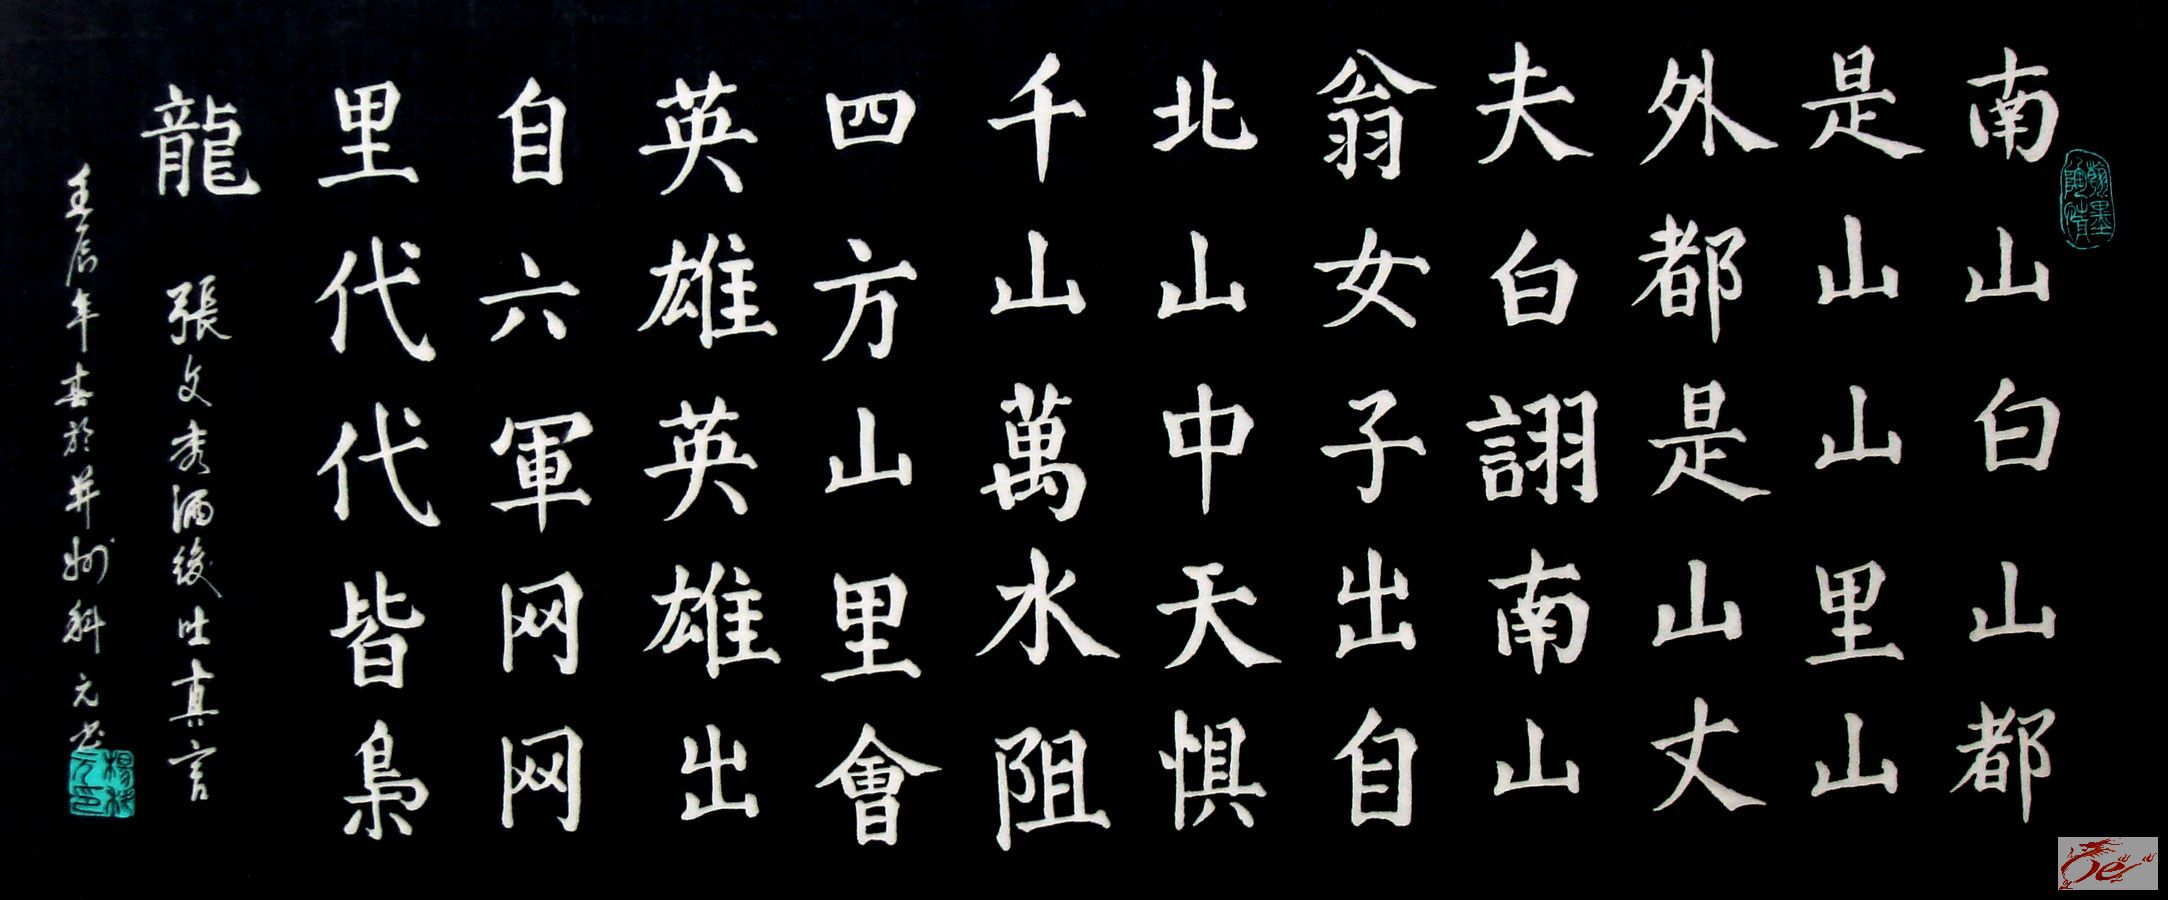 南山白山都
是山山里山
外都是山丈
夫白詡南山
翁女子出自
北山中天惧
千山萬水阻
四方山里會
英雄英雄出
自六軍网网
里代代皆梟
龍
張文秀酒後吐真言
壬辰年春於并州科元书
翰墨
陶情